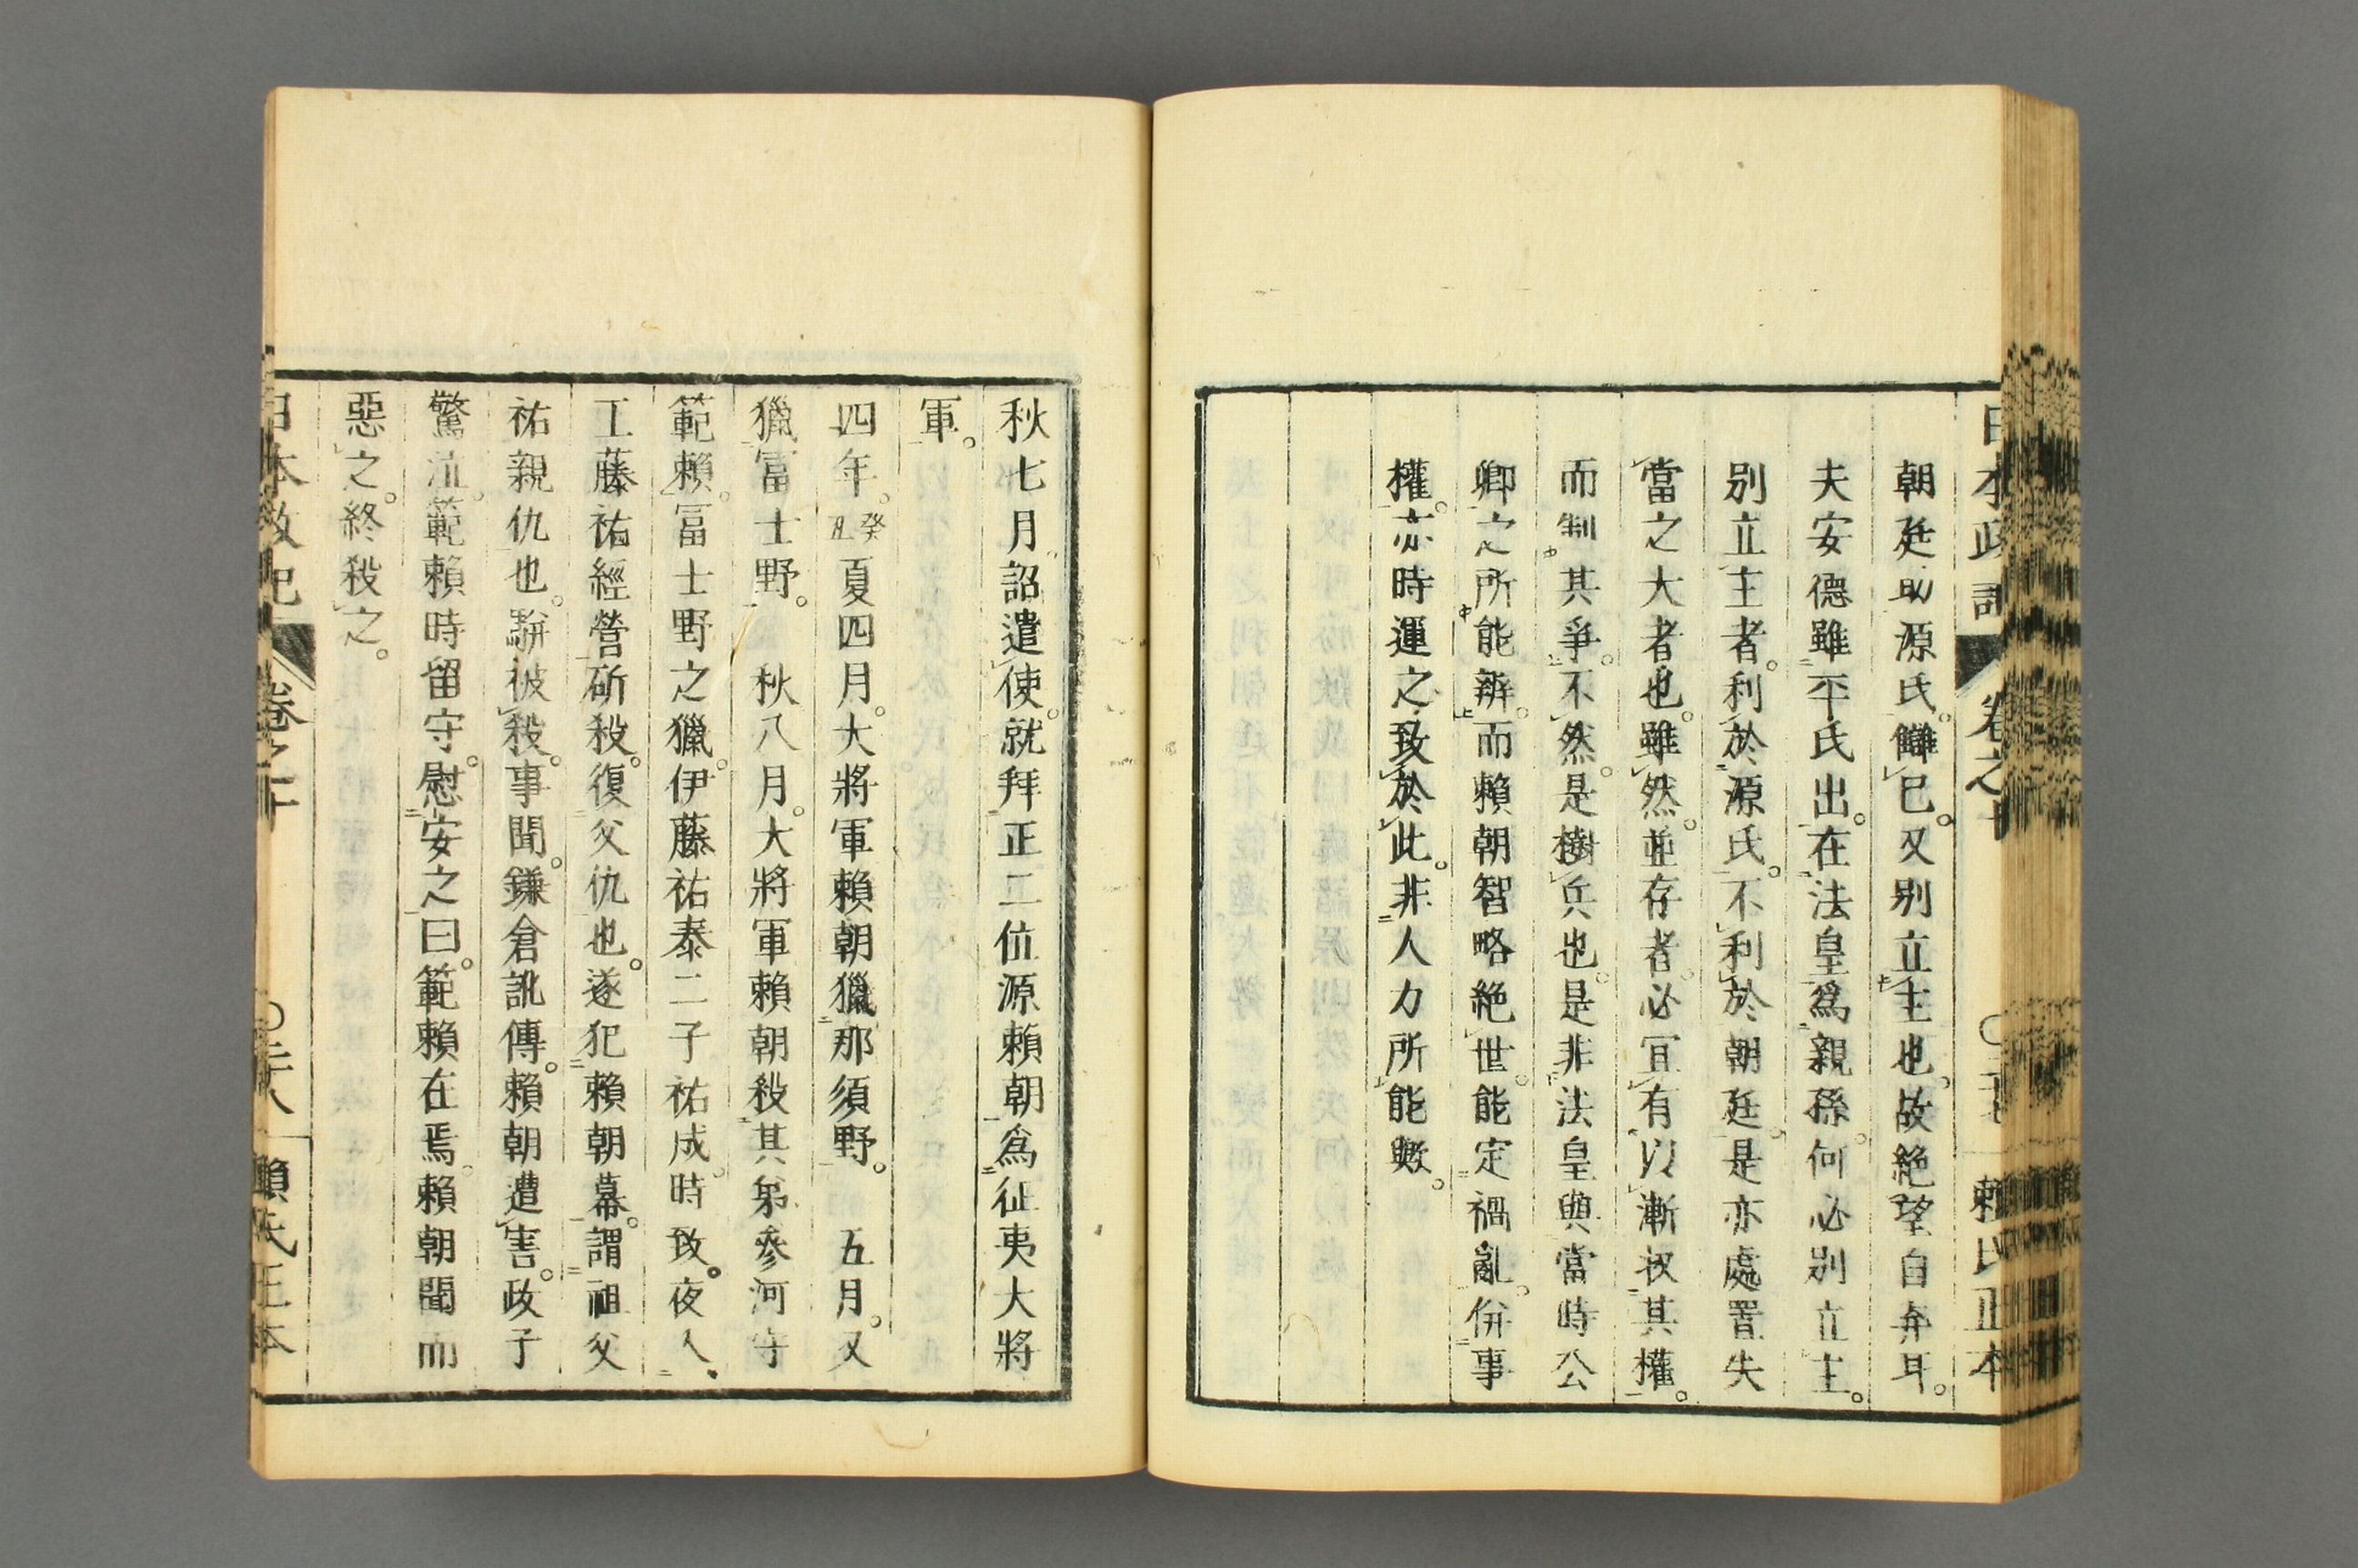 日本政記 卷之十 賴氏正本
朝廷助源氏。讎已。又別立主也。故絶望自弃耳。
夫安德雖平氏出。在法皇爲親孫。何必別立主。
別立主者。利於源氏。不利於朝廷。是亦處置失
當之大者也。雖然。並存者。必宜有以漸收其權。
而制其爭。不然。是樹兵也。是非法皇與當時公
卿之所能辨。而賴朝智略絶世。能定禍亂。倂事
權。亦時運之致於此。非人力所能歟。
秋七月。詔遣使。就拜正二位源賴朝爲征夷大將
軍。
四年。癸丑夏四月。大將軍賴朝獵那須野。 五月。又
獵富士野。 秋八月。大將軍賴朝殺其弟參河守
範賴。富士野之獵。伊藤祐泰二子祐成。時致。夜入
工藤祐經營。斫殺。復父仇也。遂犯賴朝幕。謂祖父
祐親仇也。騈被殺。事聞。鎌倉訛傳。賴朝遭害。政子
驚泣。範賴時留守。慰安之曰。範賴在焉。賴朝聞而
惡之。終殺之。
日本政記 卷之十 〇二十八 賴氏正本